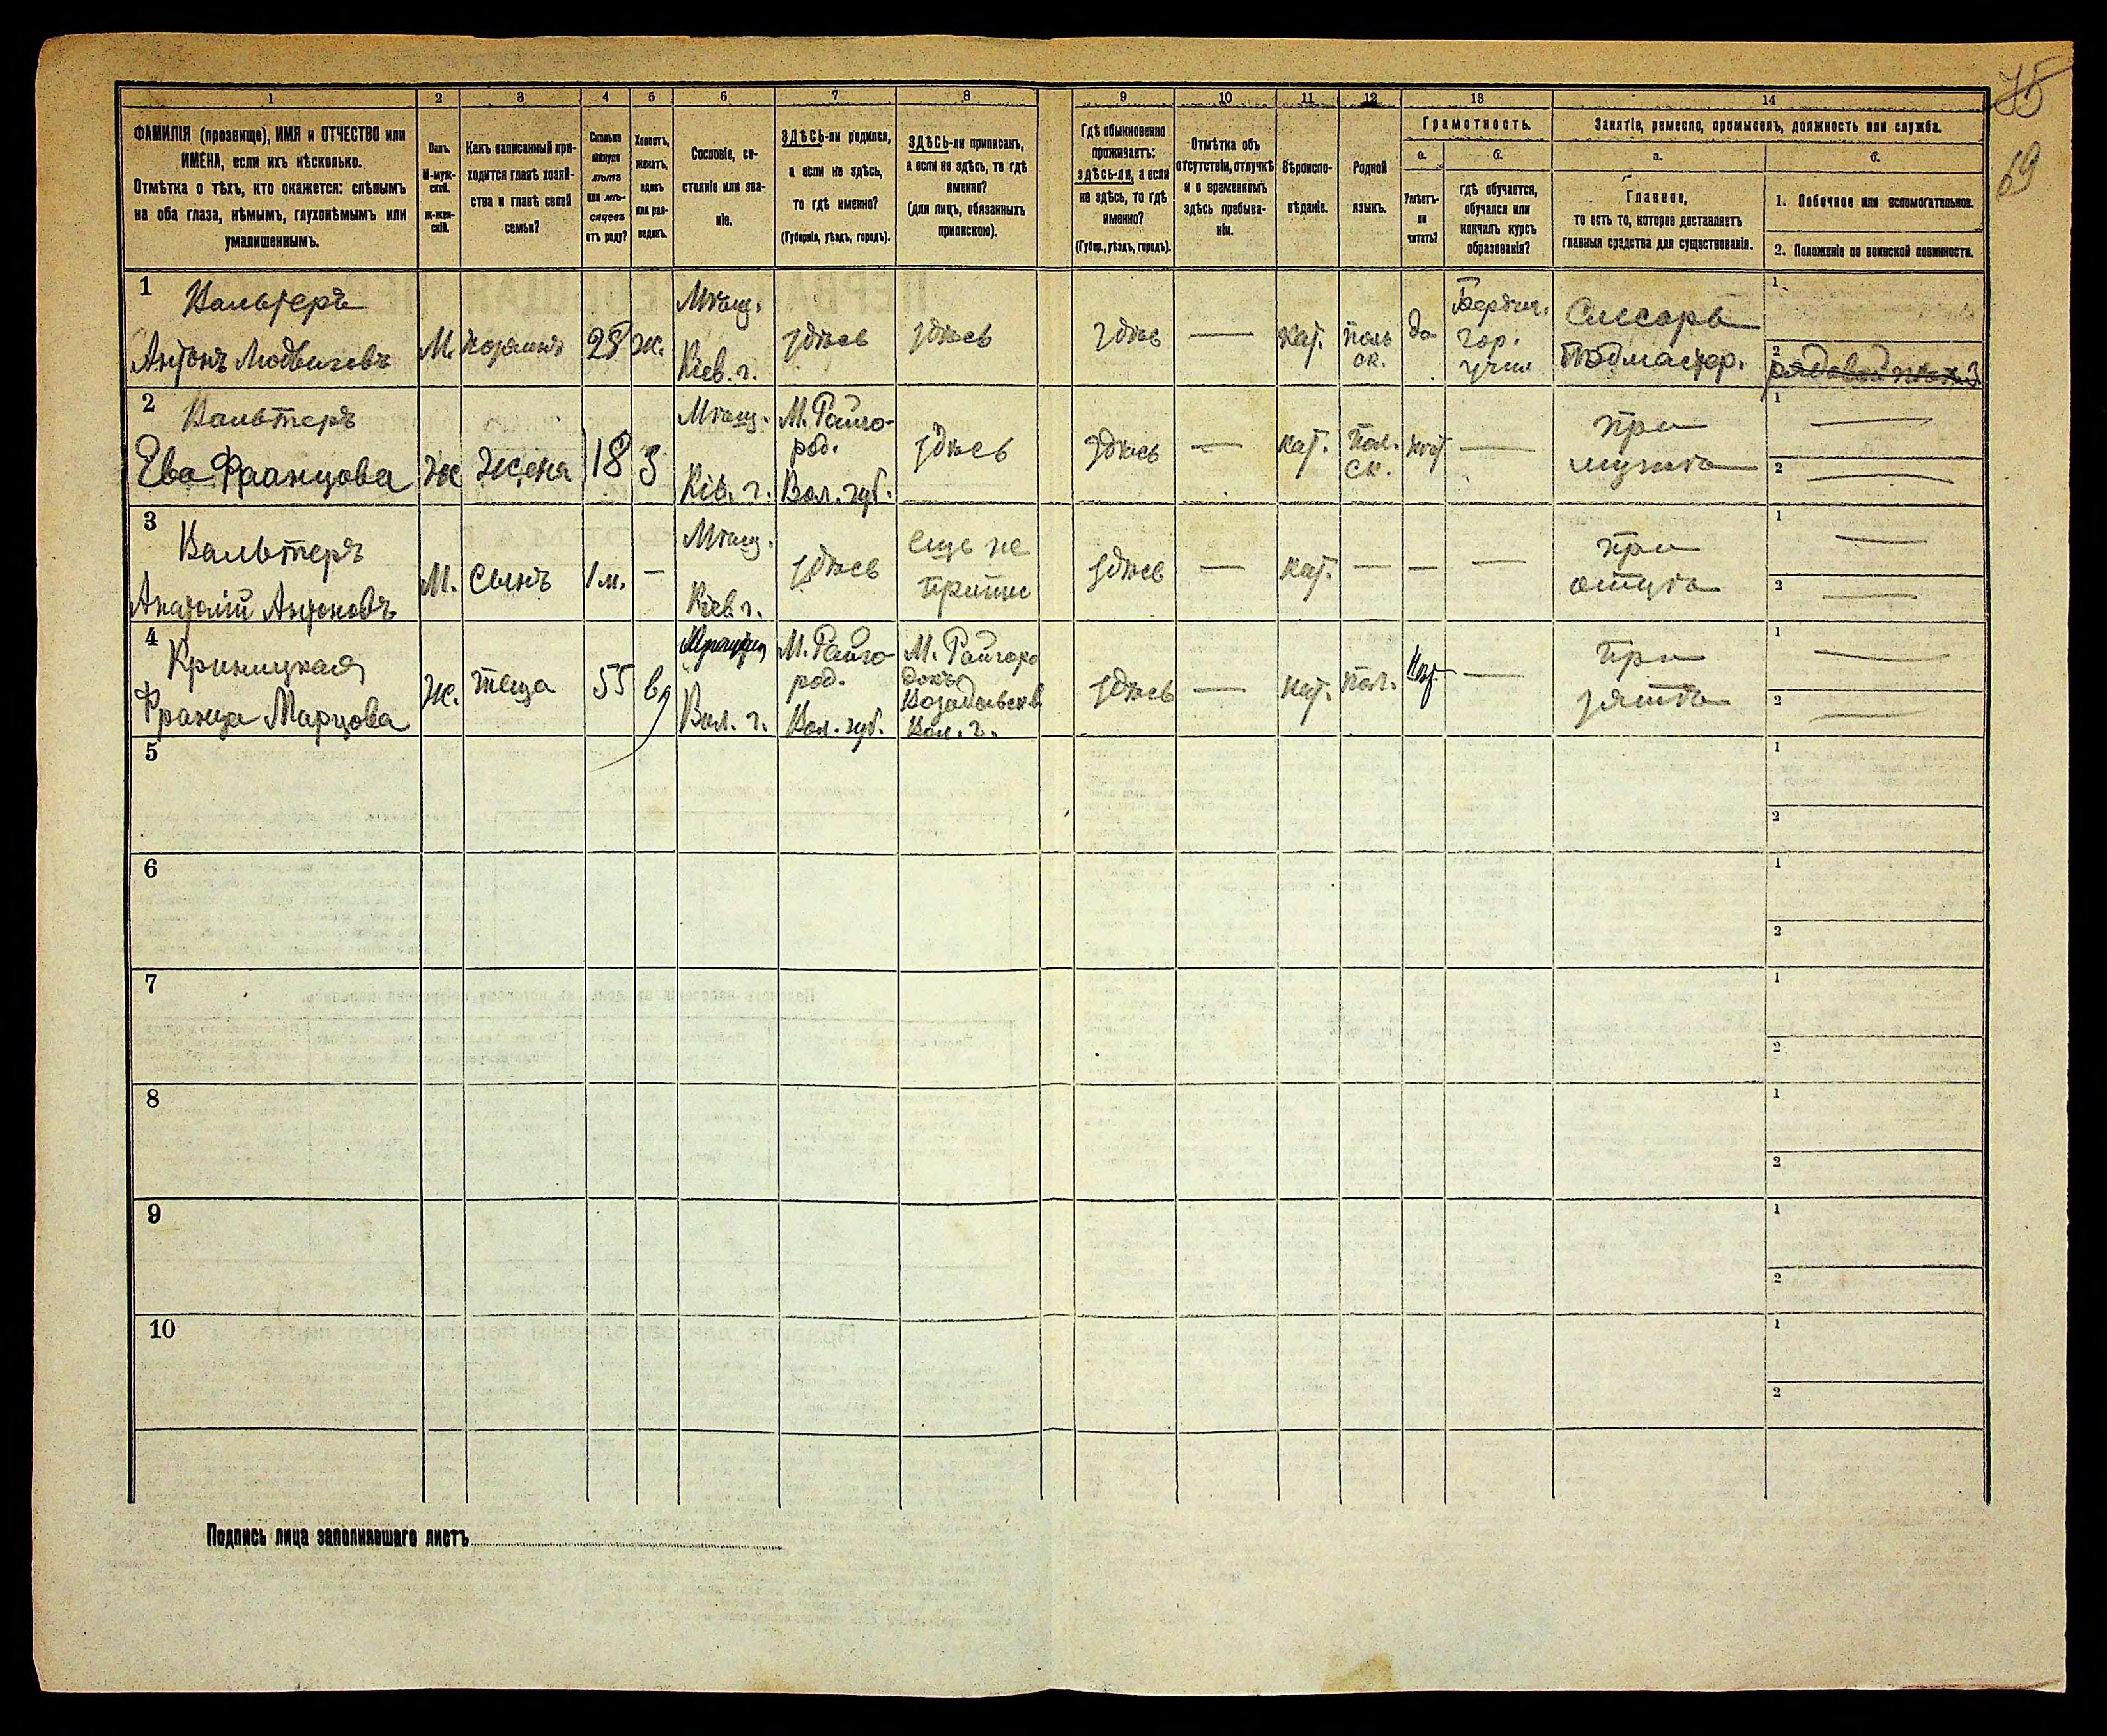 75
69
1 2 3 4 5 6 7 8 9 10 11 12 13 14
ФАМИЛІЯ (прозвище), ИМЯ и ОТЧЕСТВО или
ИМЕНА, если ихъ нѣсколько.
Отмѣтка о тѣхъ, кто окажется: слѣпымъ
на оба глаза, нѣмымъ, глухонѣмымъ или
умалишеннымъ.
Полъ.
М-муж-
ской.
ж-жен-
скій.
Какъ записанный при-
ходится главѣ хозяй-
ства и главѣ своей
семьи?
Сколько
минуло
лѣтъ
или мѣ-
сяцевъ
отъ роду?
Холостъ,
женатъ,
вдовъ
или раз-
веденъ.
Сословіе, со-
стояніе или зва-
ніе.
ЗДѢСЬ-ли родился,
а если не здѣсь,
то гдѣ именно?
(Губернія, уѣздъ, городъ).
ЗДѢСЬ-ли приписанъ,
а если не здѣсь, то гдѣ
именно?
(для лицъ, обязанныхъ
припискою).
Гдѣ обыкновенно
проживаетъ:
здѣсь-ли, а если
не здѣсь, то гдѣ
именно?
(Губер., уѣздъ, городъ).
Отмѣтка объ
отсутствіи, отлучкѣ
и о временномъ
здѣсь пребыва-
ніи.
Вѣроиспо-
вѣданіе.
Родной
языкъ.
Грамотность.
а.
Умѣетъ-
ли
читать?
б.
гдѣ обучается,
обучался или
кончилъ курсъ
образованія?
Занятіе, ремесло, промыселъ, должность или служба.
а.
Главное,
то есть то, которое доставляетъ
главныя средства для существованія.
б.
1. Побочное или вспомогательное.
2. Положеніе по воинской повинности.
1
Вальтеръ
Антонъ Людвиговъ
М.
хозяинъ
25
ж.
Мѣщ.
Кіев. г.
здѣсь
здѣсь
здѣс
—
кат.
поль
ск.
да
Бердич.
гор.
учил
Слесарь
Подмастер.
1
2
рядовой
2
Вальтеръ
Ева Францова
Ж
Жена
18
З
Мѣщ.
Кіев. г.
М. Райго-
род.
Вол. губ.
здѣсь
здѣсь
—
кат.
Пол.
ск.
нѣт
—
при
мужѣ
1 —
2 —
3
Вальтеръ
Анатолій Антоновъ
М.
Сынъ
1 м.
—
Мѣщ.
Кіев г.
здѣсь
еще не
припис
здѣсь
—
кат.
—
—
—
при
отцѣ
1 —
2 —
4
Криницкая
Франца Марцова
Ж.
теща
55
вд
Вол. г.
М. Райго-
род.
Вол. губ.
М. Райгоро
докъ
Вол. г.
здѣсь
—
кат.
пол.
Нѣт
—
при
зятѣ
1 —
2 —
5
1
2
6
1
2
7
1
2
8
1
2
9
1
2
10
1
2
Подпись лица заполнявшаго листъ